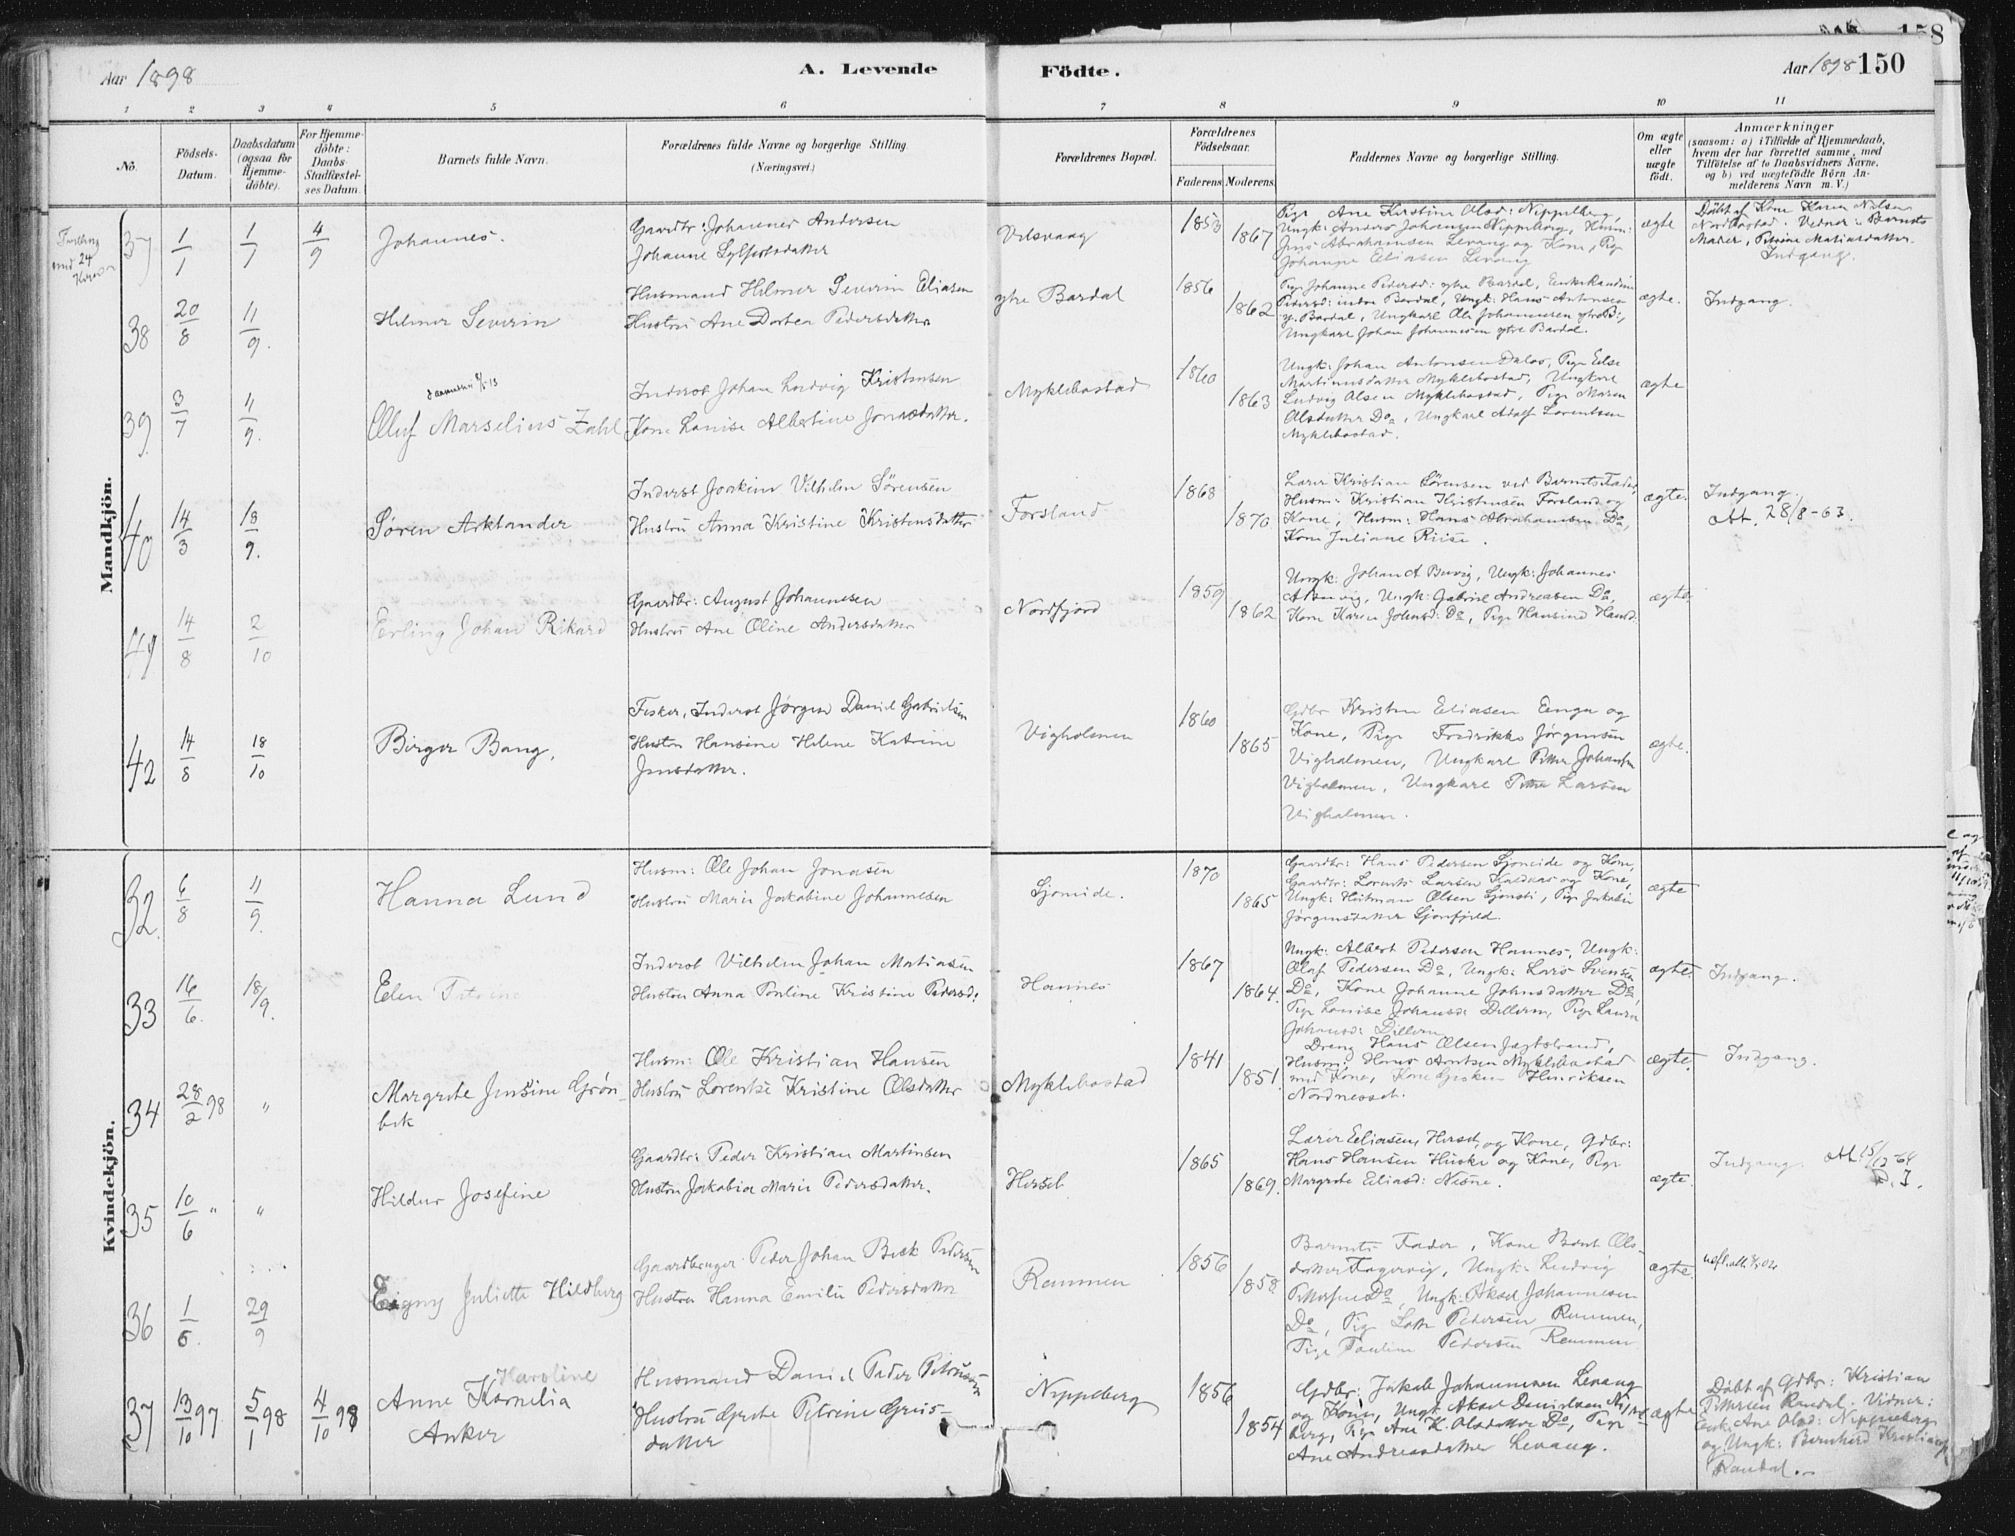 Aar 1898
A. Levende
Födte.
Aar 1898 150
158
1 2 3 4 5 6 7 8 9 10 11
No.
Födsels-
Datum.
Daabsdatum
(ogsaa for
Hjemme-
döbte).
For Hjemme-
döbte:
Daabs-
Stadfæstel-
ses Datum.
Barnets fulde Navn.
Forældrenes fulde Navne og borgerlige Stilling.
(Næringsvei.)
Forældrenes Bopæl.
Forældrenes
Födselsaar.
Faderens. Moderens.
Faddernes Navne og borgerlige Stilling.
Om ægte
eller
uægte
födt.
Anmærkninger
(saasom: a) i Tilfælde af Hjemmedaab,
hvem der har forrettet samme, med
Tilföielse af to Daabsvidners Navne,
og b) ved uægtefödte Börn An-
melderens Navn m. V.)
Mandkjön.
37 1/1 1/7 4/9
Johannes.
Gaardbr: Johannes Andersen
Johanne Sylfestsdatter
Velsvaag
1853 1867
Pige Ane Kirstine Olsd: Nippelberg,
Ungk: Anders Johansen Nippelberg, Husm:
Jens Abrahamsen Levang og Kone, Pige
Johanne Eliasen Levang
ægte
Döbt af Kone Karen Nilsen
Nordbostad. Vidner: Barnets
Moder, Petrine Matiasdatter.
Indgang.
38 20/8 11/9.
Hilmer Severin
Husmand Hilmer Severin Eliasen
Hustru Ane Dortea Pedersdatter
ytre Bardal
1856 1862
Pige Johanne Pedersd: ytre Bardal, Enke Randine
Pedersd: indre Bardal, Ungk: Hans Antonsen
y. Bardal, Ungkarl Ole Johannesen ytre B:,
Ungkarl Johan Johannesen ytre Bardal.
ægte.
Indgang.
39 3/7 11/9.
Oluf Marselius Zahl
Inderst Johan Ludvig Kristensen
Kone Lovise Albertine Jonasdatter.
Myklebostad
1860 1863
Ungk: Johan Antonsen Dalos, Pige Else
Martinusdatter Myklebostad, Ungkarl
Ludvig Olsen Myklebostad, Pige Maren
Olsdatter Do, Ungkarl Adolf Lorentsen
Myklebostad.
ægte
40 14/3 18/9.
Søren Arktander
Inderst Joakim Vilhelm Sørensen
Hustru Anna Kristine Kristensdatter
Forsland
1868 1870
Lærer Kristian Sørensen ved Barnets Fader,
Husm: Kristian Kristensen Forsland og
Kone, Husm: Hans Abrahamsen Do,
Kone Juliane Riise.
ægte.
Indgang.
At. 28/8-63.
14/8 2/10
Erling Johan Rikard
Gaardbr: August Johannesen
Hustru Ane Oline Andersdatter
Nordfjord
1859 1862
Ungk: Johan A Buvig, Ungk: Johannes
Ungk: Gabriel Andreasen Do,
Kone Karen Johnsd: Do, Pige Hansine Hansd:
ægte.
42 14/8 18/10
Birger Bang.
Fisker, Inderst Jørgen Daniel Gabrielsen
Hustru Hansine Helene Katrine
Jensdatter.
Vigholmen
1860 1865
Gdbr Kristen Eliasen Enga og
Kone, Pige Fredrikke Jørgensen
Vigholmen, Ungkarl Peter Johansen
Vigholmen, Ungkarl Peter Larsen
Vigholmen.
ægte.
Kvindekjön.
32. 6/8 11/9.
Hanna Lund
Husm: Ole Johan Jonasen
Hustru Marie Jakobine Johannesen
Sjoneide.
1870 1865
Gaardbr: Hans Pedersen Sjoneide og Kone,
Gaardbr: Lorents Larsen Kaldaas og Kone,
Ungk: Hartman Olsen Sjonsti, Pige Jakobin
Jørgensdatter Sjonfjeld.
ægte
33 16/6. 18/9.
Elen Petrine
Inderst Vilhelm Johan Matiasen
Hustru Anna Pauline Kristine Pedersd:
Hannes
1867 1864.
Ungk: Albert Pedersen Hannes, Ungk:
Olaf Pedersen Do, Ungk: Lars Svensen
Do, Kone Johanne Johnsdatter Do,
Pige Louise Johansd: Dillern, Pige Laura
Johansd: Dillern
ægte.
Indgang.
34 28/2 98 "
Margrete Jensine Grøn-
bek
Husm: Ole Kristian Hansen
Hustru Lorentse Kristine Olsdatter
Myklebostad
1841 1851.
Dreng Hans Olsen Jagtstrand,
Husm: Hans Arntsen Myklebostad
med Kone, Kone Henriksen
Nordnesset.
ægte.
Indgang.
35 10/6 " "
Hildur Josefine
Gaardbr: Peder Kristian Martinsen
Hustru Jakobia Marie Pedersdatter.
Hersel
1865 1869.
Lærer Eliasen, Hersel, og Kone, Gdbr:
Hans Hansen Huske og Kone, Pige
Margrete Eliasd: Nesne.
ægte.
Indgang. At. 15/12 64
D.J.
36 1/5. 29/9
Signy Juliette Hildborg
Gaardbruger Peder Johan Beck Pedersen
Hustru Hanna Emilie Pedersdatter
Remmen
1856 1858
Barnets Fader, Kone Berit Ols-
datter Fagervig, Ungk: Ludvig
Pettersen Do, Ungk: Aksel Johannesen
Do, Pige Lotte Pedersen Remmen,
Pige Pauline Pedersen Remmen
ægte.
37 13/10 97. 5/1 98 4/10 98
Karoline
Anne Kornelia
Anker
Husmand Daniel Peder Petersen
Hustru Grete Petrine Greis-
datter
Nippelberg
1856 1854
Gdbr: Jakob Johannesen Levang
og Kone, Ungk Aksel Danielsen Nippel-
berg, Pige Ane K. Olsdatter Do, Pige
Ane Andreasdatter Levang.
ægte
Döbt af Gdbr: Kristian
Pettersen Randal. Vidner:
Enke Ane Olsd: Nippelberg
og Ungk: Bernhard Kristiansen
Randal.